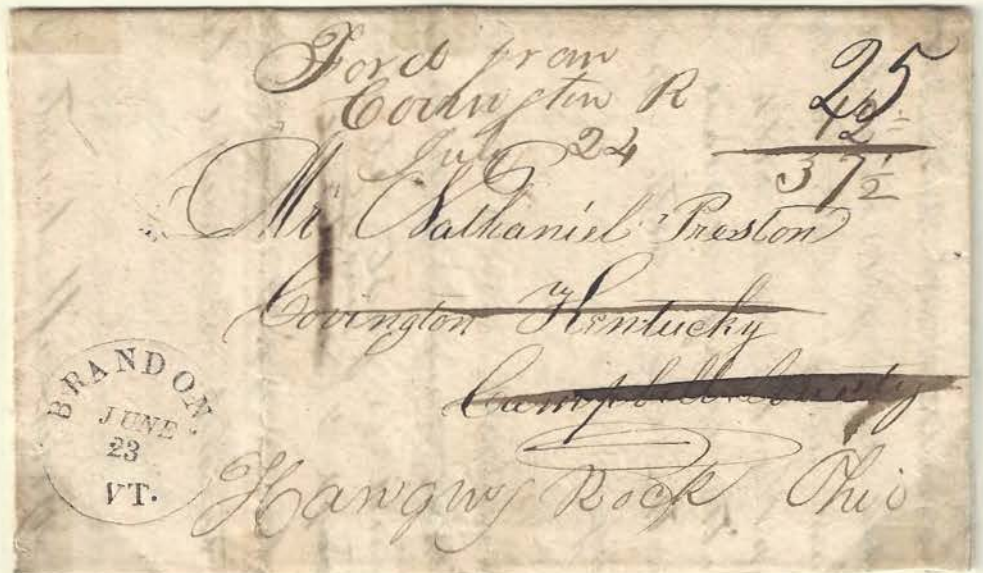 Ford from
Covington K
July 24
25
12½
37½
Mr Nathaniel Preston
Covington Kentucky
Campbell County
Hanging Rock Ohio
BRANDON.
JUNE
23
VT.